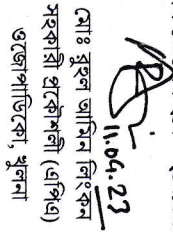 11.04.23
মোঃ রুহুল আমিন লিংকন
সহকারি প্রকৌশলী (এপিপি)
ওজোপাডিকো, খুলনা